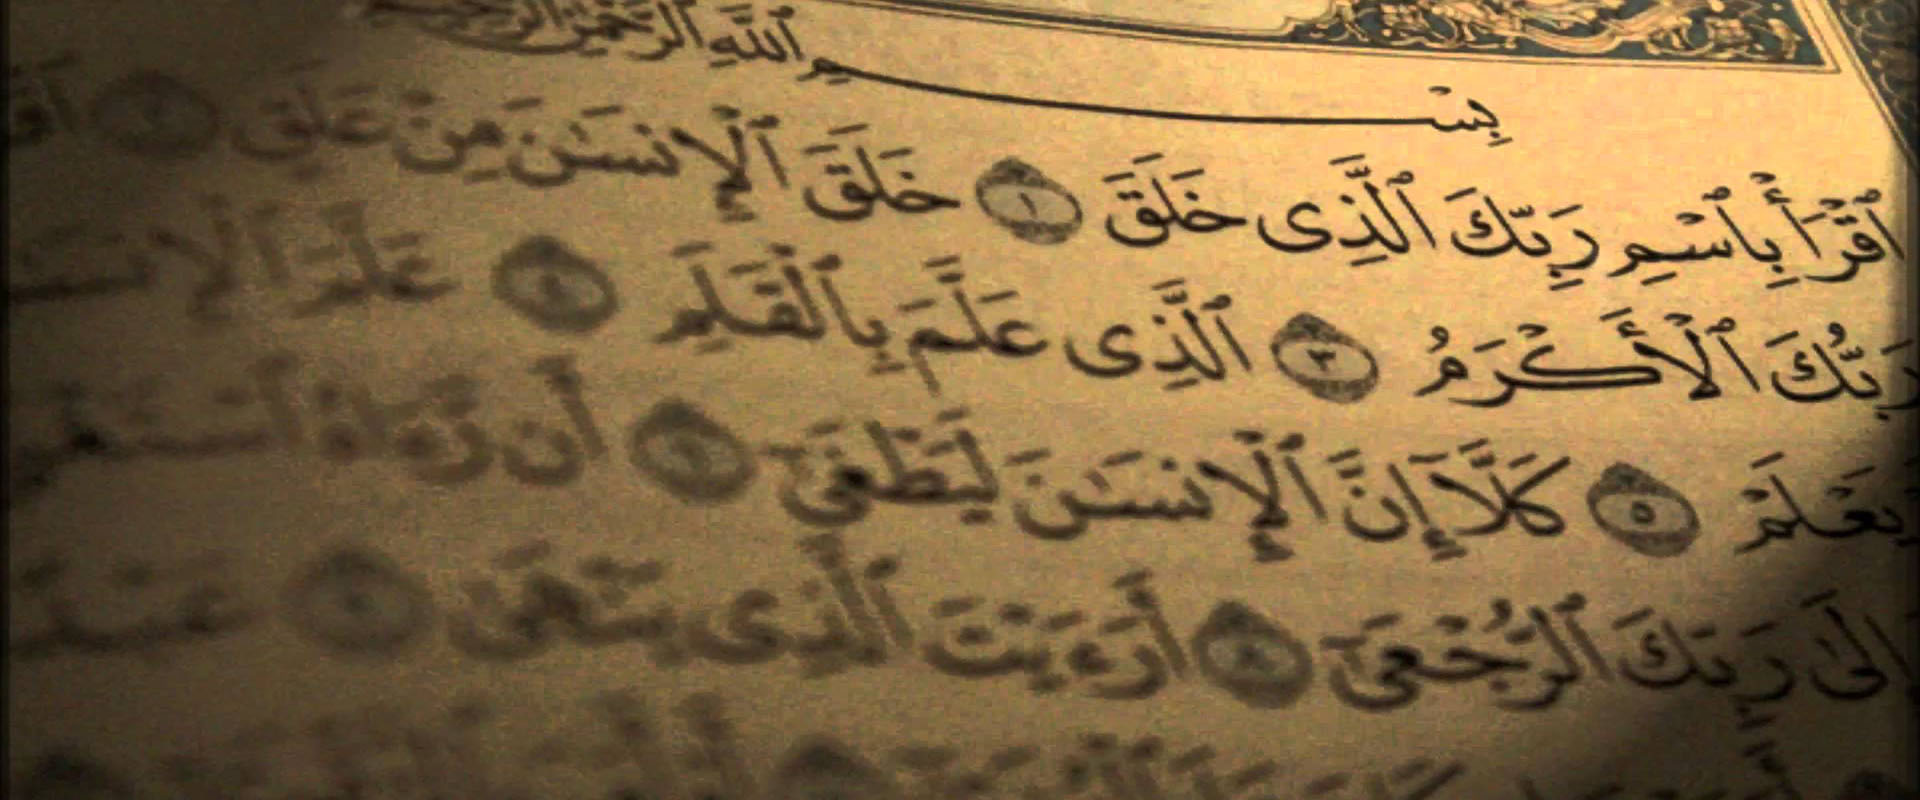 بِسْمِ ٱللَّهِ ٱلرَّحْمَٰنِ ٱلرَّحِيمِ
ٱقْرَأْ بِٱسْمِ رَبِّكَ ٱلَّذِى خَلَقَ ١ خَلَقَ ٱلْإِنسَٰنَ مِنْ عَلَقٍ ٢
رَبُّكَ ٱلْأَكْرَمُ ٣ ٱلَّذِى عَلَّمَ بِٱلْقَلَمِ ٤ عَلَّمَ
يَعْلَمْ ٥ كَلَّآ إِنَّ ٱلْإِنسَٰنَ لَيَطْغَىٰٓ ٦ أَن رَّءَاهُ
إِلَىٰ رَبِّكَ ٱلرُّجْعَىٰٓ ٨ أَرَءَيْتَ ٱلَّذِى يَنْهَىٰ ٩